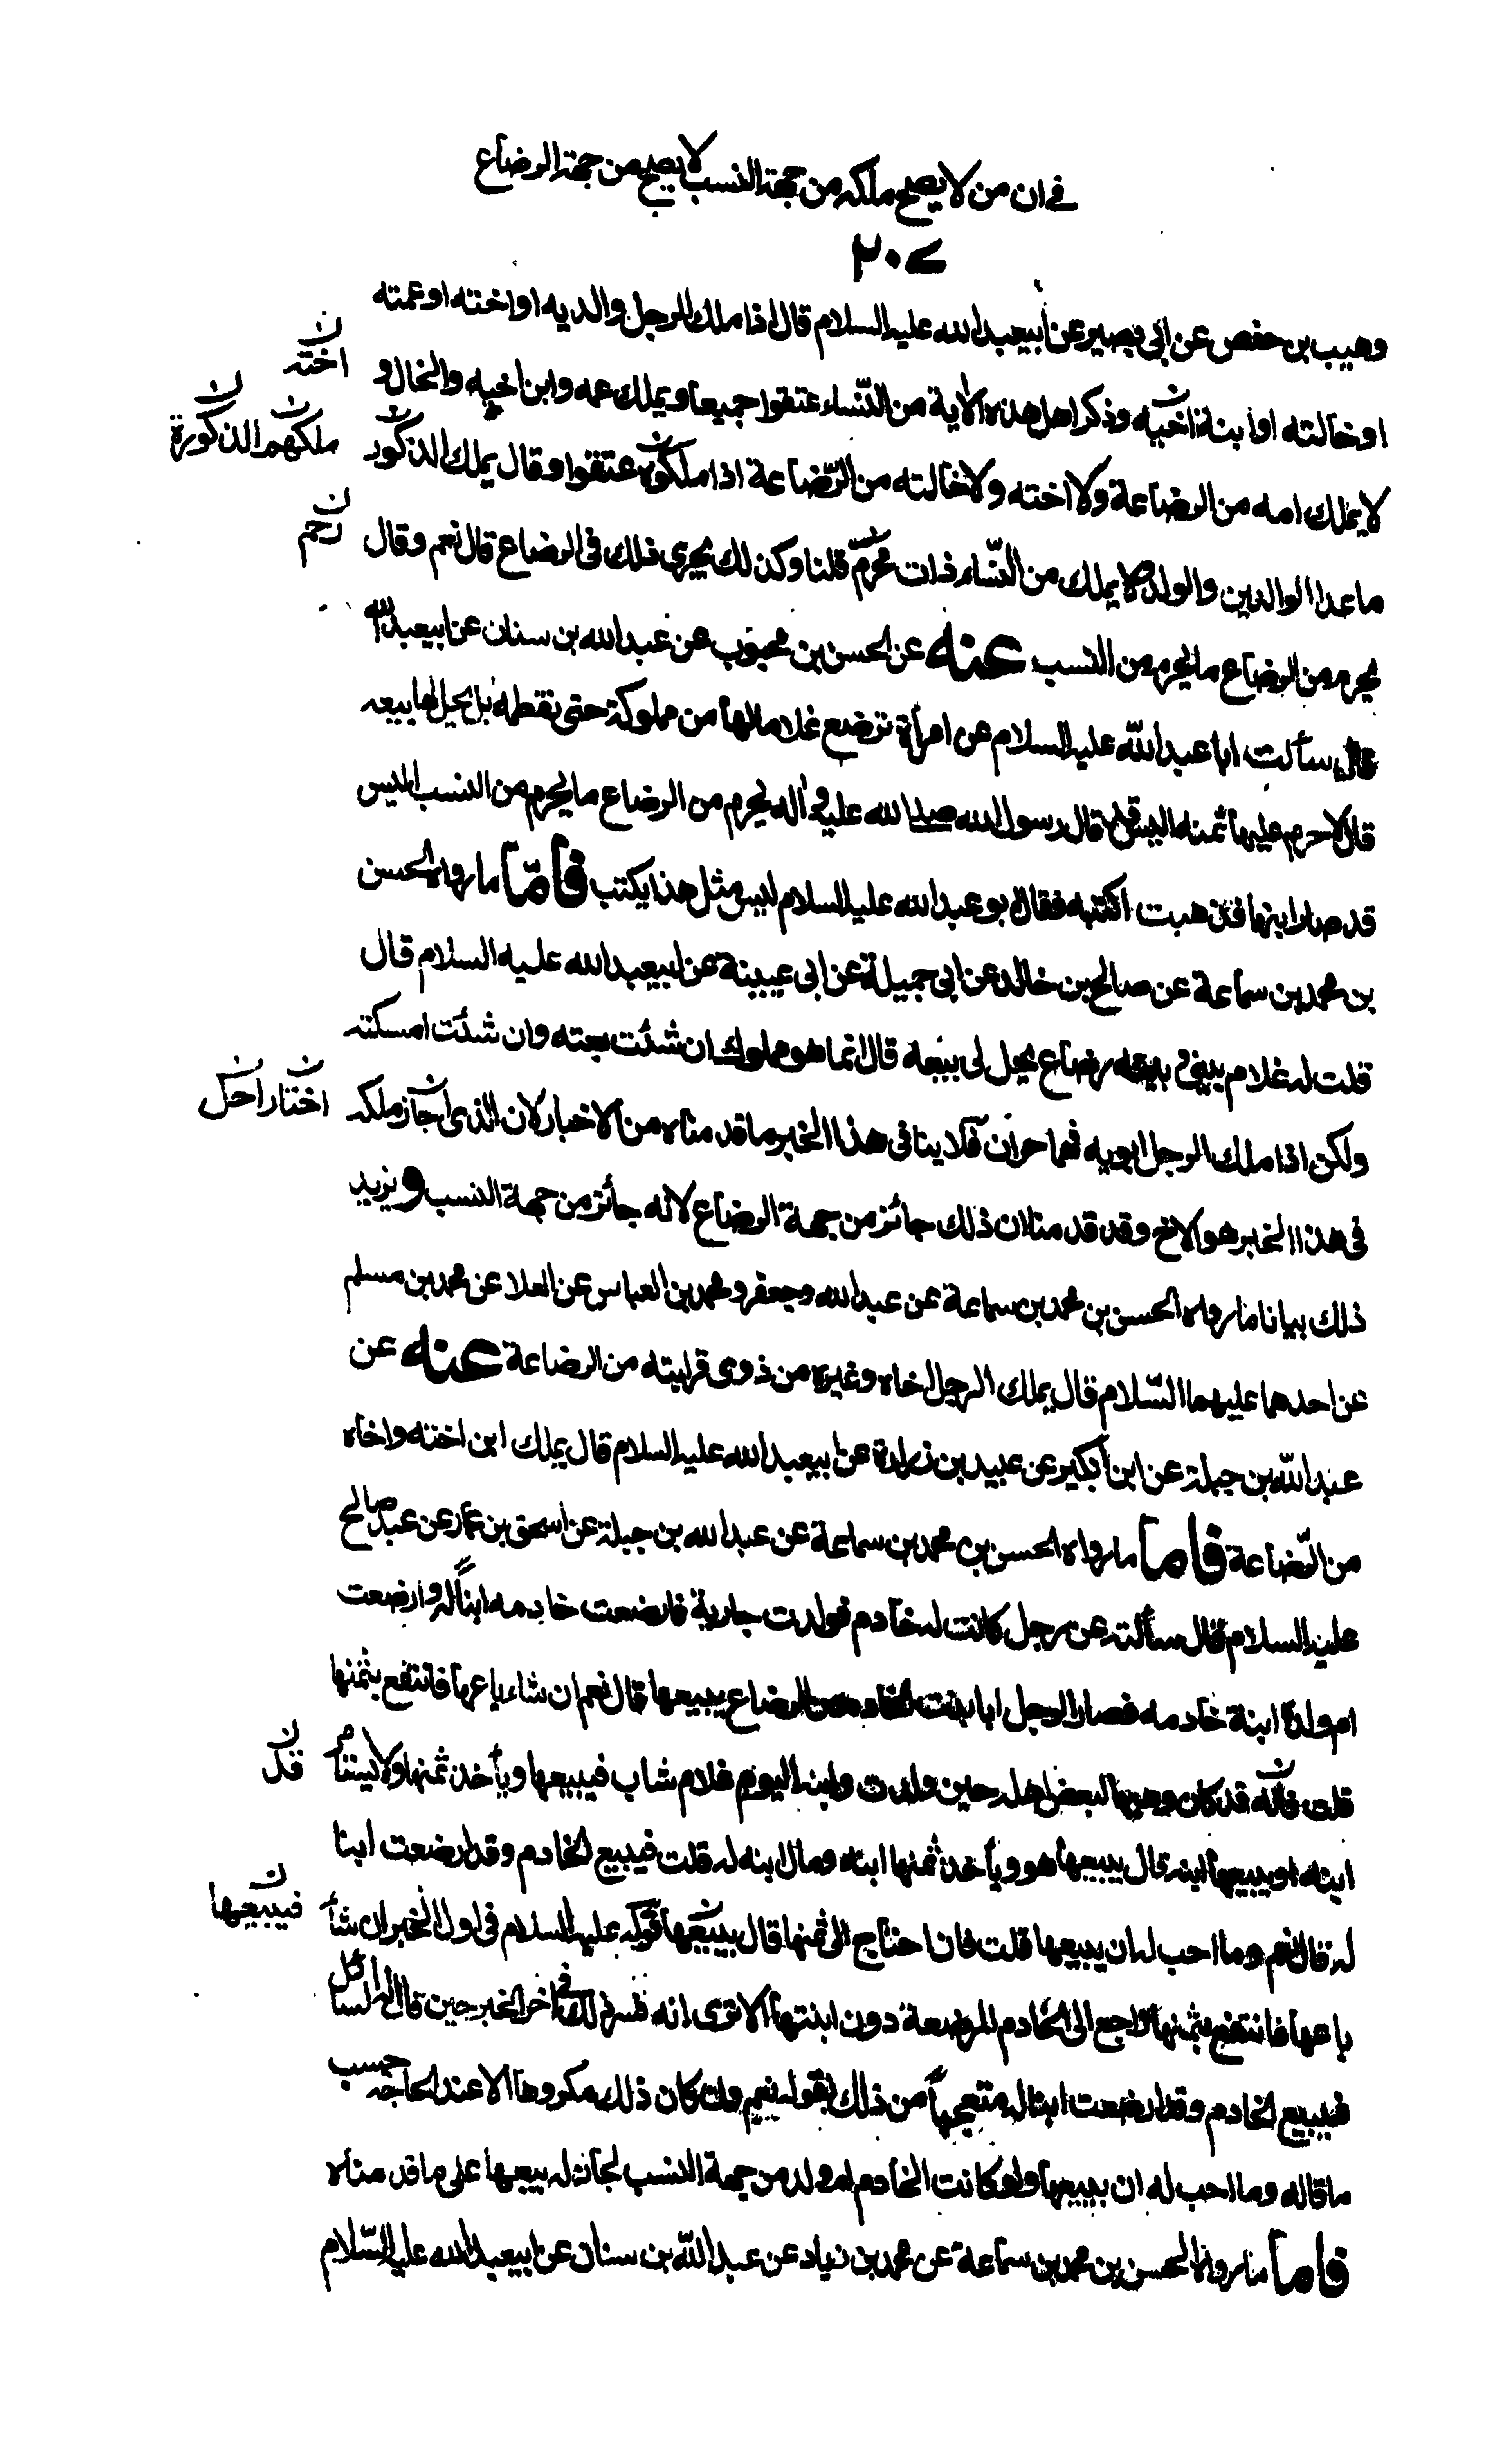 في ان من لا يصح ملكه من جهة النسب لا يصح من جهة الرضاع
٢٠٤
وهيب بن حفص عن ابي بصير عن ابيعبد الله عليه السلام قال اذا ملك الرجل والديه او اخته او عمته
او خالته او ابنة اخيه وذكر اهل هذه الاية من النساء عتقوا جميعا ويملك عمه وابن اخيه والخال و
اخته
لا يملك امه من الرضاعة ولا اخته ولا خالته من الرضاعة اذا ملكوه عتقوا وقال يملك الذكور
ملكهم الذكورة
ما عدا الوالدين والولد ولا يملك من النساء ذات محرم قلنا وكذلك يجري ذلك في الرضاع قال نعم وقال
رحم
يحرم من الرضاع ما يحرم من النسب عنه عن الحسن بن محبوب عن عبد الله بن سنان عن ابيعبد الله
قال سألت ابا عبد الله عليه السلام عن امرأة ترضع غلاما لها من مملوكة حتى تفطمه يحل لها بيعه
قال لا حرم عليها ثمنه اليس قد قال رسول الله صلى الله عليه واله يحرم من الرضاع ما يحرم من النسب اليس
قد صار ابنها فذهبت اكتبه فقال ابو عبد الله عليه السلام ليس مثل هذا يكتب فاما ما رواه الحسن
بن محمد بن سماعة عن صالح بن خالد عن ابي جميلة عن ابي عيينة عن ابيعبد الله عليه السلام قال
قلت له غلام بيني وبينه رضاع يحل لي بيعه قال انما هو مملوك ان شئت بعته وان شئت امسكته
ولكن اذا ملك الرجل ابويه فهما حران فلا ينافي هذا الخبر ما قدمناه من الاخبار لان الذي اجاز ملكه
اختار احل
في هذا الخبر هو الاخ وقد قدمنا ان ذلك جائز من جهة الرضاع لانه جائز من جهة النسب ويزيد
ذلك بيانا ما رواه الحسن بن محمد بن سماعة عن عبد الله وجعفر ومحمد بن العباس عن العلا عن محمد بن مسلم
عن احدهما عليهما السلام قال يملك الرجل اخاه وغيره من ذوي قرابته من الرضاعة عنه عن
عبد الله بن جبلة عن ابن بكير عن عبيد بن زرارة عن ابيعبد الله عليه السلام قال يملك ابن اخته واخاه
من الرضاعة فاما ما رواه الحسن بن محمد بن سماعة عن عبد الله بن جبلة عن اسحق بن عمار عن عبد صالح
عليه السلام قال سألته عن رجل كانت له خادم فولدت جارية فارضعت خادمه ابنا له وارضعت
ام ولده ابنة خادمه فصار الرجل ابا بنت الخادم من الرضاع يبيعها قال نعم ان شاء باعها فانتفع بثمنها
قلت فانه قد كان وهبها لبعض اهله حين ولدت وابنه اليوم غلام شاب فيبيعها ويأخذ ثمنها ولا يستأمر
قد
ابنه او يبيعها ابنه قال يبيعها هو ويأخذ ثمنها ابنه ومال ابنه له قلت فيبيع الخادم وقد ارضعت ابنا
له قال نعم وما احب له ان يبيعها قلت فان احتاج الى ثمنها قال يبيعها قوله عليه السلام في اول الخبر ان شاء
فيبيعها
باعها فانتفع بثمنها راجع الى الخادم المرضعة دون ابنتها الا ترى انه فسر ذلك في اخر الخبر حين قال له السائل
فيبيع الخادم وقد ارضعت ابنا له متعجبا من ذلك بقوله نعم وان كان ذلك مكروها الا عند الحاجة حسب
ما قاله وما احب له ان يبيعها ولو كانت الخادم ام ولد من جهة النسب لجاز له بيعها على ما قدمناه
فاما ما رواه الحسن بن محمد بن سماعة عن محمد بن زياد عن عبد الله بن سنان عن ابيعبد الله عليه السلام